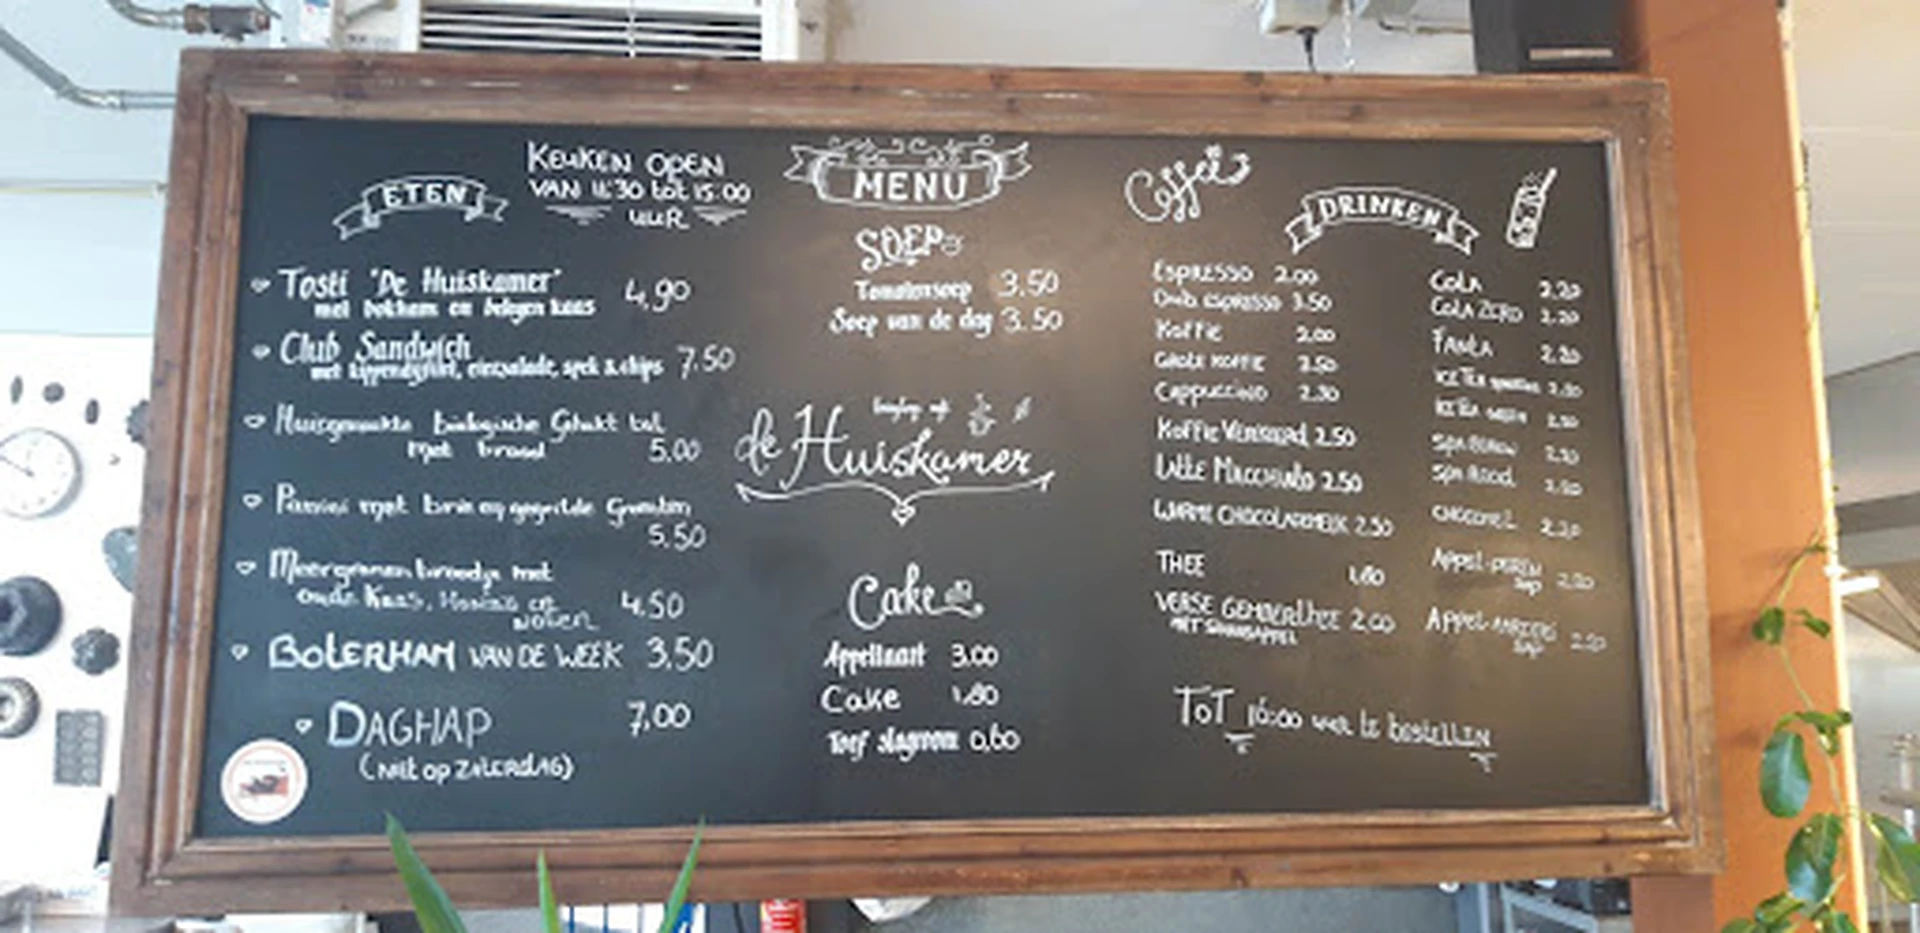 ETEN
KEUKEN OPEN
VAN 11:30 tot 15:00
UUR
Tosti "De Huiskamer" 4,90
met bokham en belegen kaas
Club Sandwich 7.50
met kippendijfilet, eiersalade, spek & chips
Huisgemaakte biologische Gehakt bal
met brood 5,00
Panini met brie en gegrilde Groenten
5,50
Meergranen broodje met
oude Kaas, en
noten 4,50
BOTERHAM VAN DE WEEK 3,50
DAGHAP 7,00
(niet op ZATERDAG)
MENU
SOEP
Tomatensoep 3,50
Soep van de dag 3.50
de Huiskamer
Cake
Appeltaart 3,00
Cake 1,80
Toef slagroom 0,60
Coffee
DRINKEN
ESPRESSO 2.00
Dub. ESPRESSO 3.50
Koffie 2.00
GROTE KOFFIE 3.50
Cappuccino 2.30
Koffie Verkeerd 2.50
Latte Macchiato 2.50
WARME CHOCOLADEMELK 2.50
THEE 1,80
VERSE GEMBERTHEE 2.00
MET SINAASAPPEL
COLA 2.20
COLA ZERO 2.20
FANTA 2.20
ICE TEA
ICE TEA GREEN
SPA BLAUW
SPA ROOD
CHOCOMEL 2.20
APPEL-PEREN
sap 2.20
APPEL-
sap 2.20
TOT 16:00 uur te bestellen